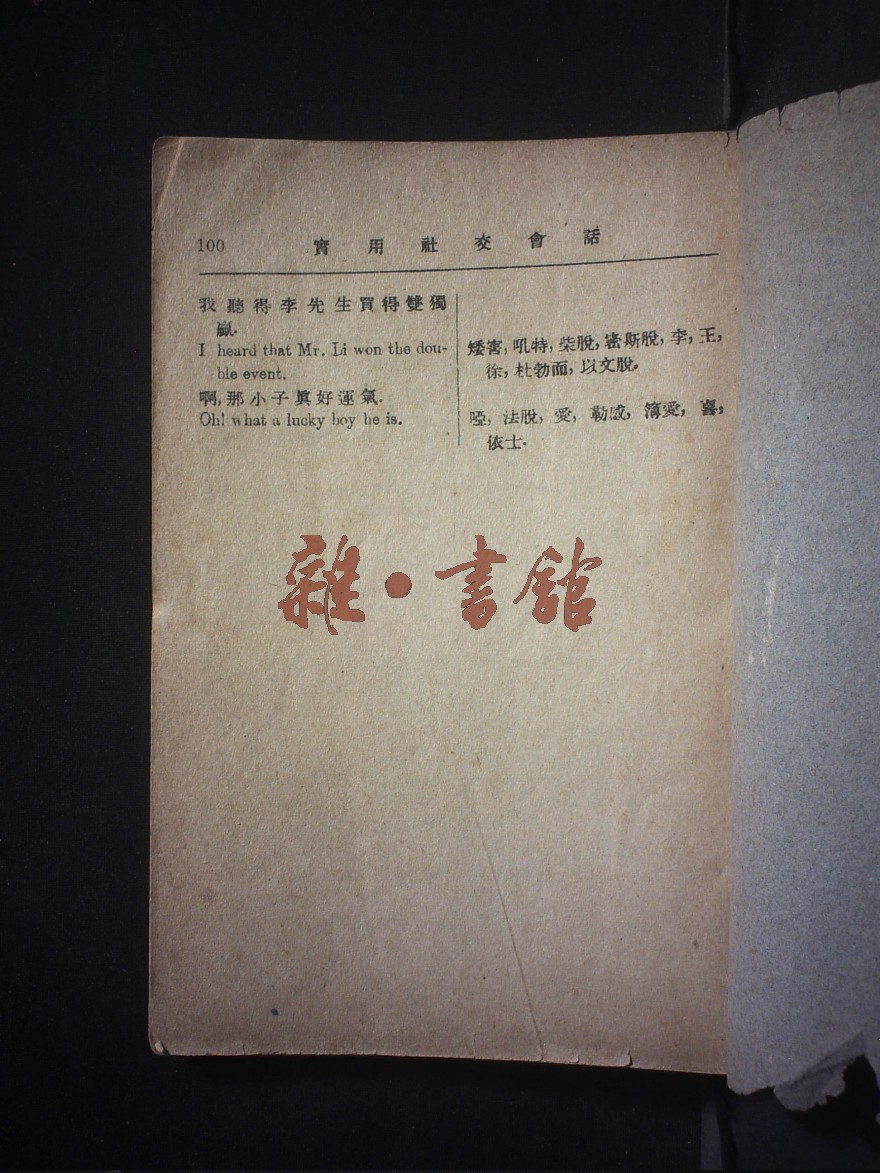 100 實用社交會話
我聽得李先生買得雙獨
贏.
I heard that Mr. Li won the dou-
ble event.
啊, 那小子眞好運氣.
Oh! what a lucky boy he is.
矮害, 吼特, 柴脫, 密斯脫, 李, 王,
徐, 杜勃而, 以文脫.
啞, 法脫, 愛, 勒感, 簿愛, 喜,
依士.
雜·書館